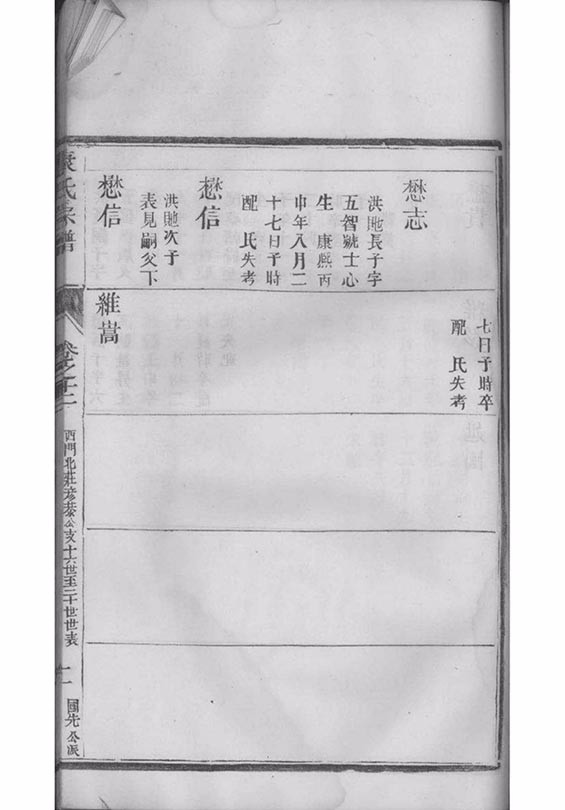 懋志
洪貤長子字
五智號士心
生 康熙丙
申年八月二
十七日子時
配 氏失考
懋信
洪貤次子
表見嗣父下
懋信
七日子時卒
配 氏失考
維嵩
氏宗譜
西門北莊彥恭公支十六世至二十世世表
國先公派